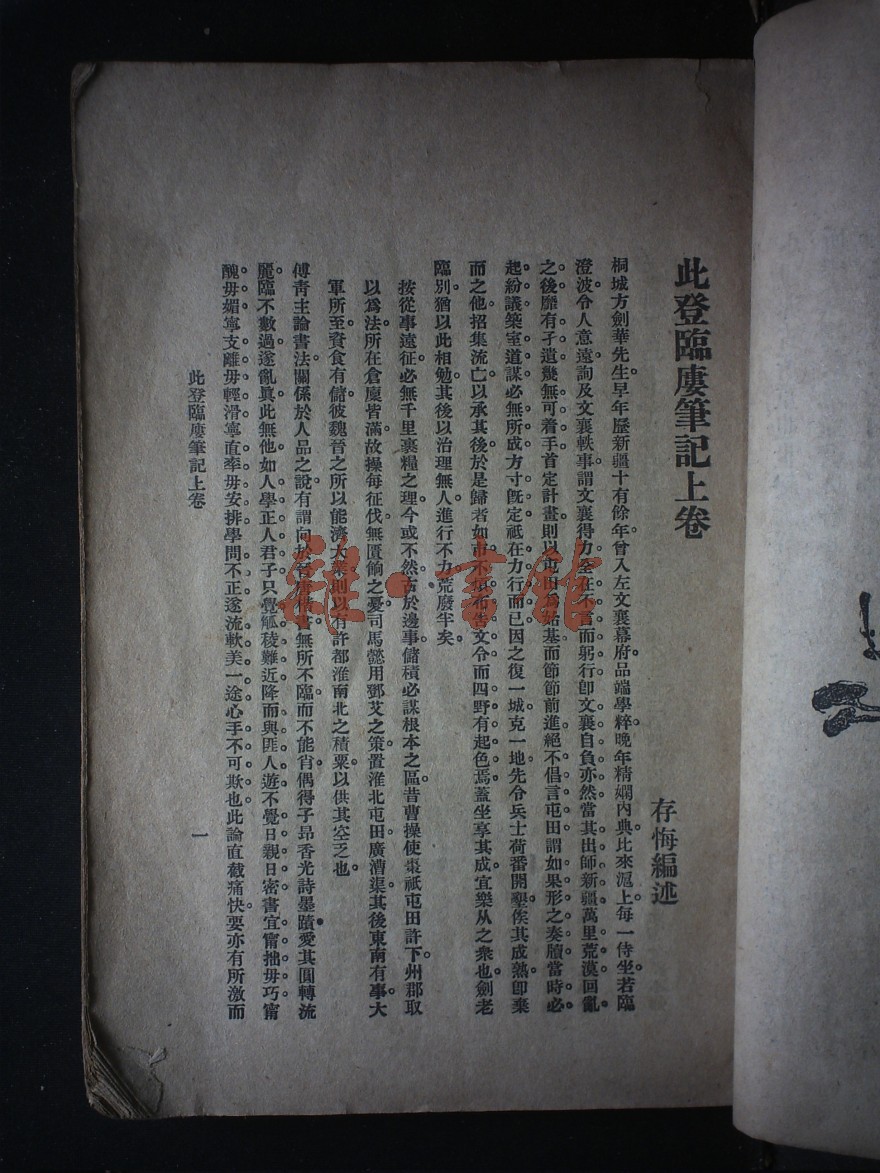 此登臨廔筆記上卷
存悔編述
桐城方劍華先生早年歷新疆十有餘年曾入左文襄幕府品端學粹晚年精嫻內典比來滬上每一侍坐若臨
澄波令人意遠詢及文襄軼事謂文襄得力全在不言而躬行卽文襄自負亦然當其出師新疆萬里荒漠回亂
之後靡有孑遺幾無可着手首定計畫則以屯田爲始基而節節前進絕不倡言屯田謂如果形之奏牘當時必
起紛議築室道謀必無所成方寸旣定祇在力行而已因之復一城克一地先令兵士荷番開墾俟其成熟卽棄
而之他招集流亡以承其後於是歸者如市不須布告文令而四野有起色焉蓋坐享其成宜樂从之衆也劍老
臨別猶以此相勉其後以治理無人進行不力荒廢半矣
按從事遠征必無千里裹糧之理今或不然古於邊事儲積必謀根本之區昔曹操使棗祗屯田許下州郡取
以爲法所在倉廩皆滿故操每征伐無匱餉之憂司馬懿用鄧艾之策置淮北屯田廣漕渠其後東南有事大
軍所至資食有儲彼魏晉之所以能濟大業則以有許都淮南北之積粟以供其空乏也
傅青主論書法關係於人品之說有謂向於晉唐楷書無所不臨而不能肖偶得子昂香光詩墨蹟愛其圓轉流
麗臨不數過遂亂眞此無他如人學正人君子只覺觚稜難近降而與匪人遊不覺日親日密書宜甯拙毋巧甯
醜毋媚寧支離毋輕滑寧直率毋安排學問不正遂流軟美一途心手不可欺也此論直截痛快要亦有所激而
此登臨廔筆記上卷
一
雜·書館